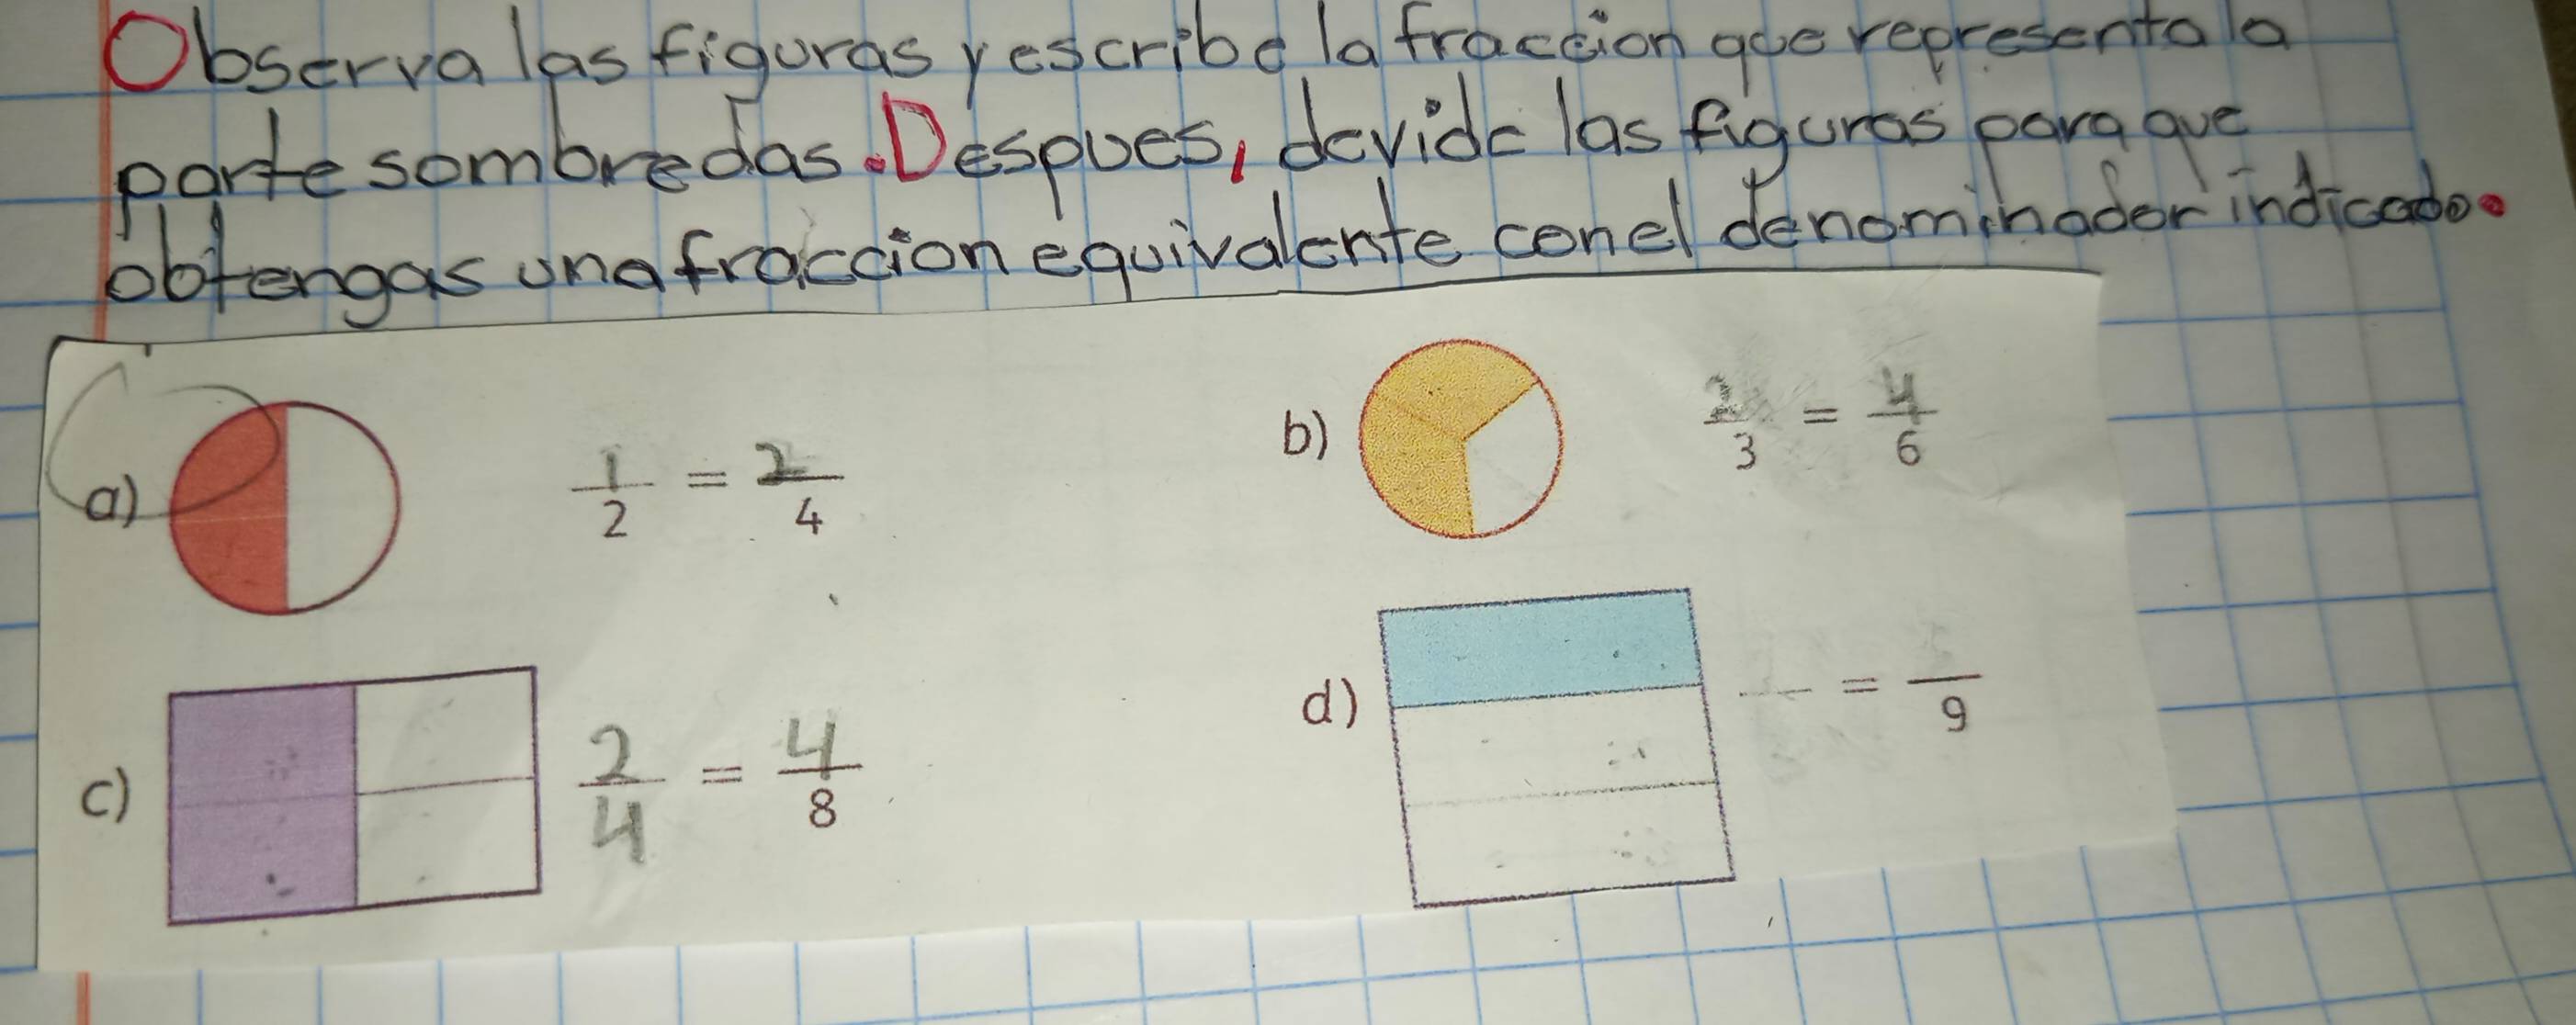 Observa las figuras y escribe la fraccion que representa la
parte sombredas. Despues, devide las figuras para que
obtengas una fraccion equivalente con el denominador indicado.
a) 1/2 = 2/4
b) 2/3 = 4/6
c) 2/4 = 4/8
d) — = —/9